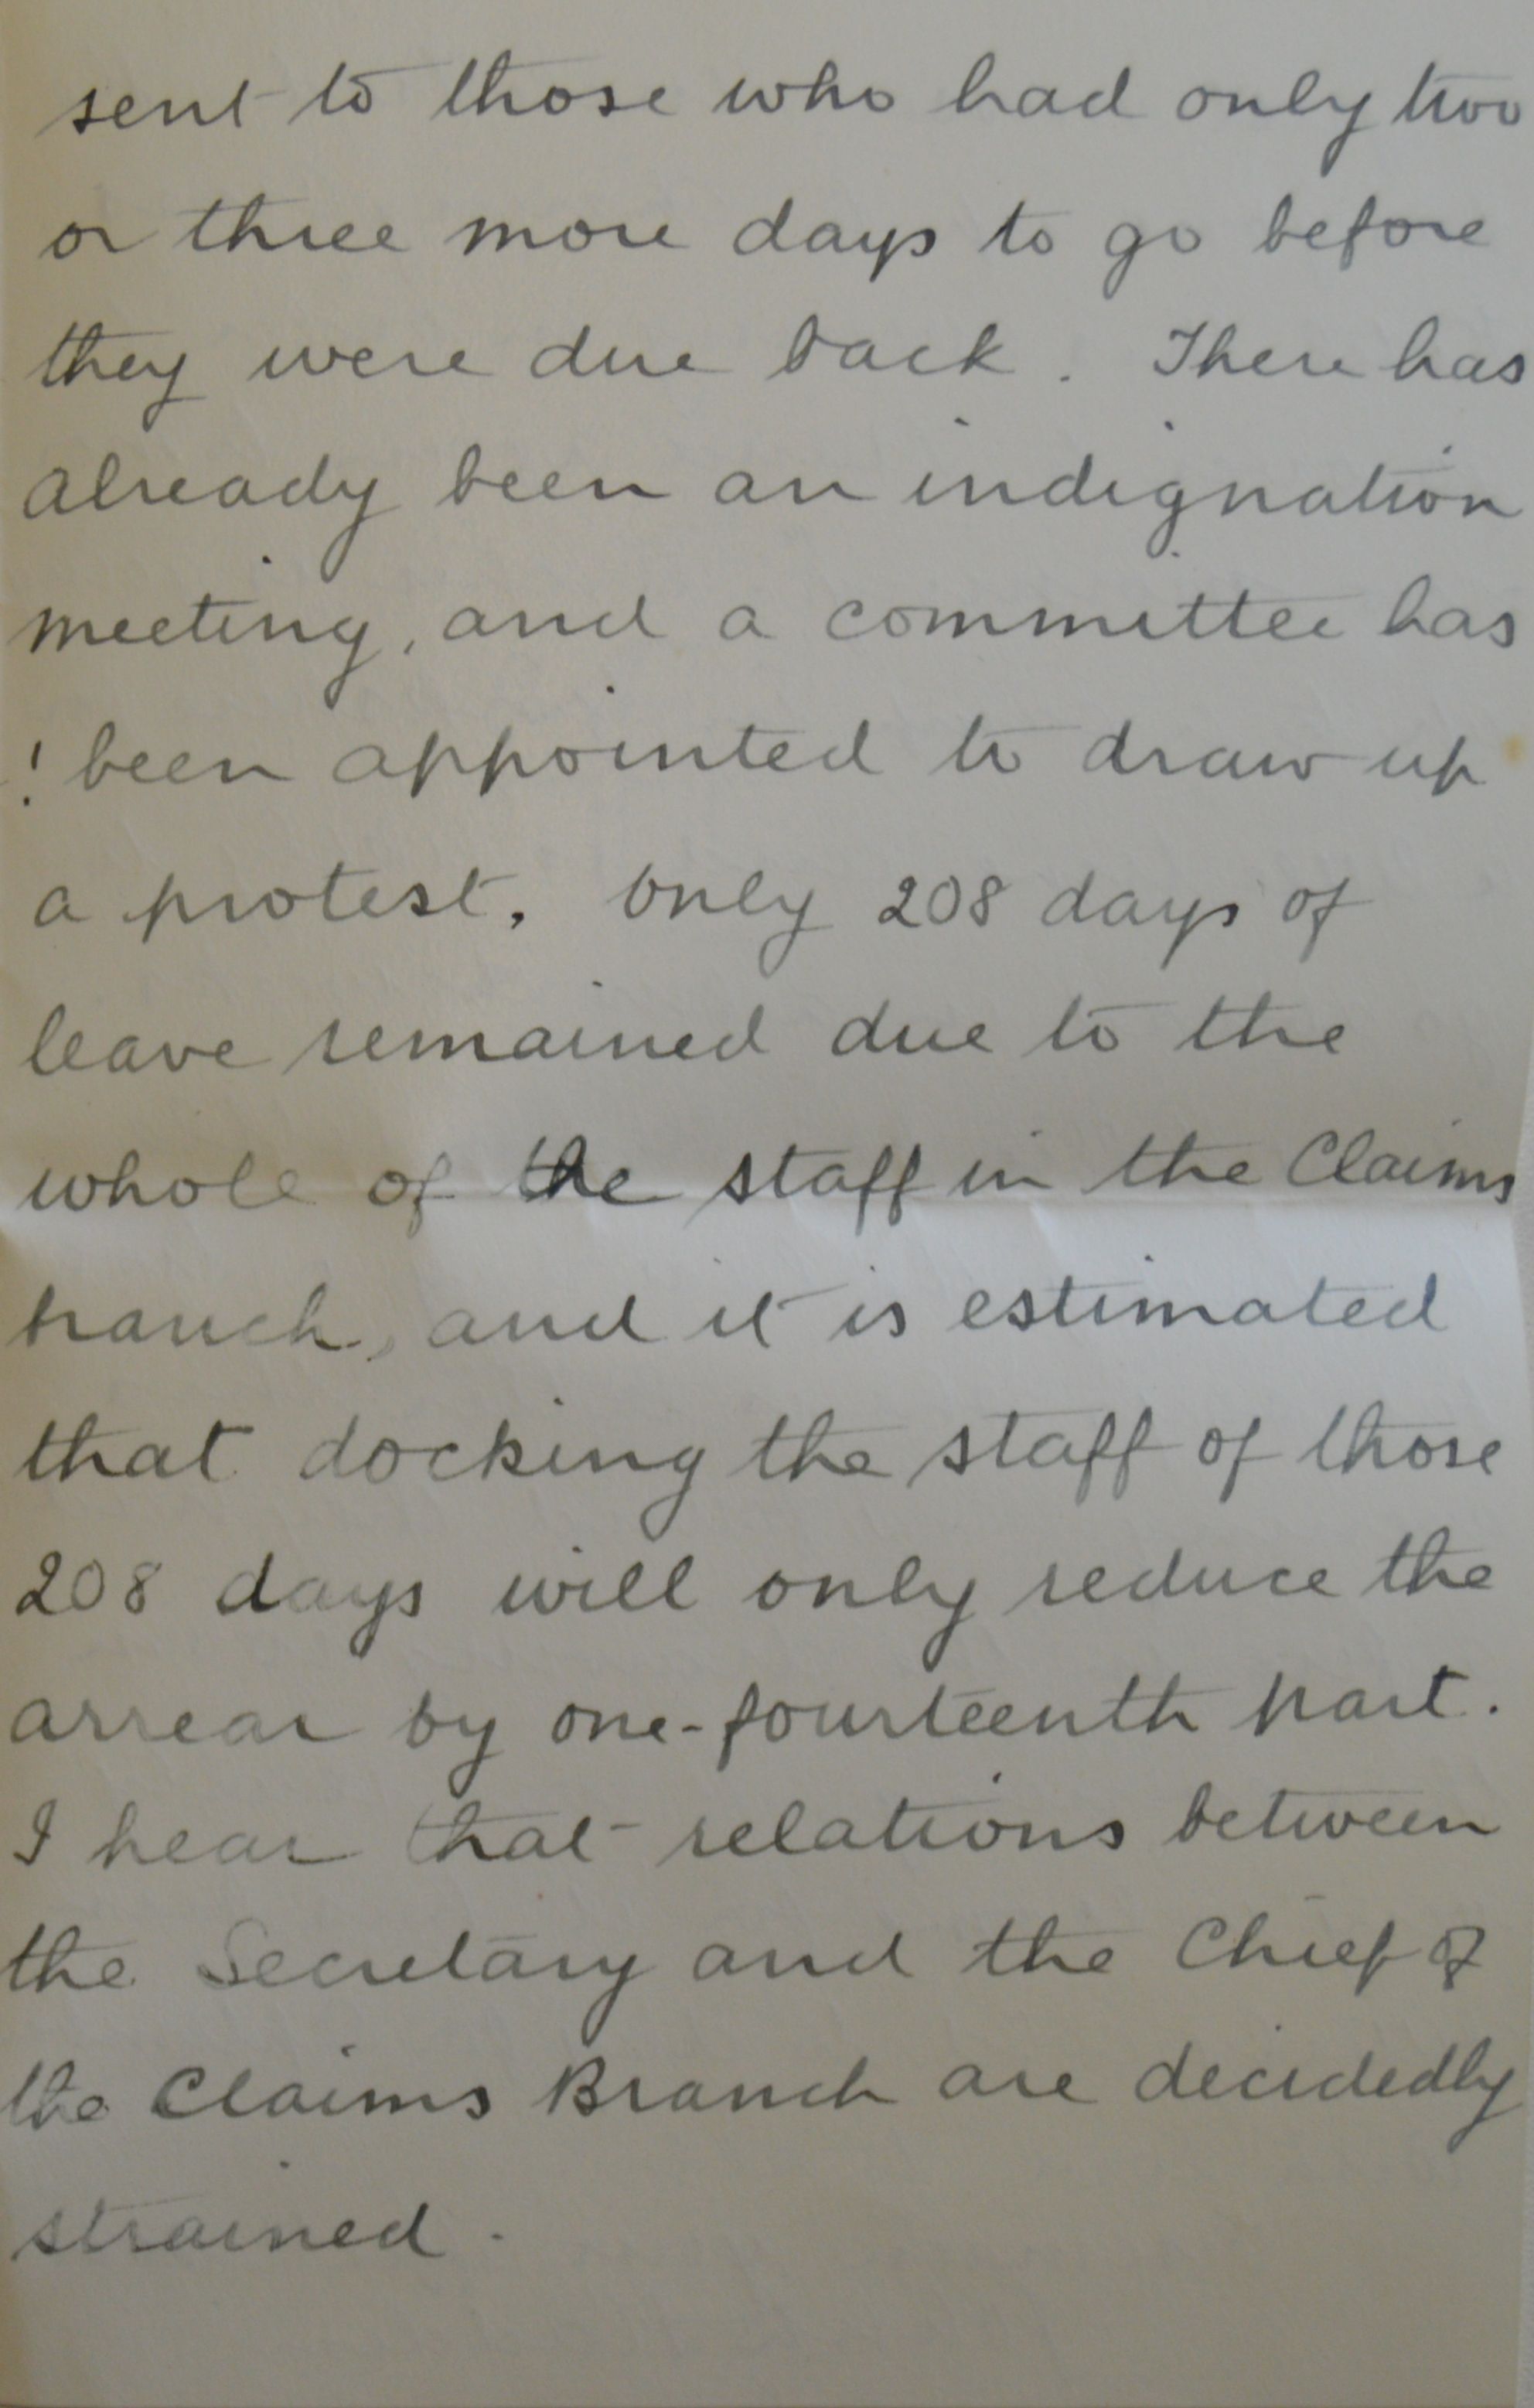 sent to those who had only two
or three more days to go before
they were due back. There has
already been an indignation
meeting, and a committee has
! been appointed to draw up
a protest. Only 208 days of
leave remained due to the
whole of the staff in the Claims
branch, and it is estimated
that docking the staff of those
208 days will only reduce the
arrear by one-fourteenth part.
I hear that relations between
the Secretary and the Chief of
the Claims Branch are decidedly
strained.